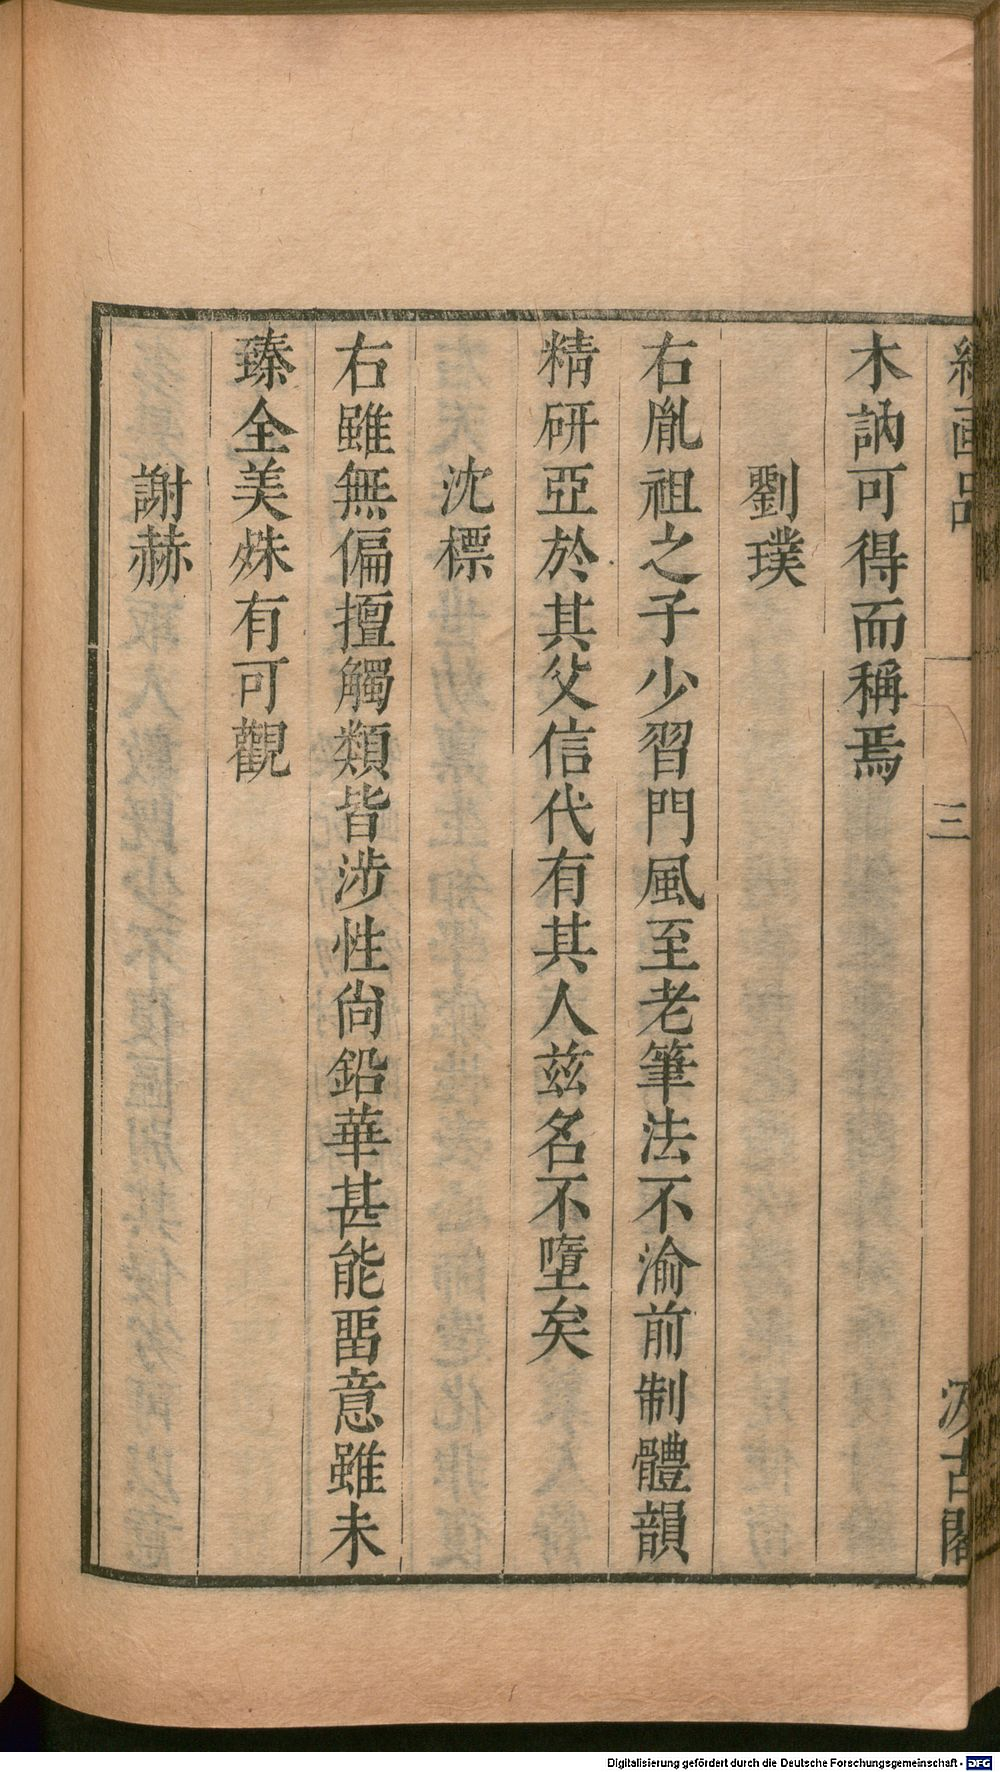 續画品
三
汲古閣
木訥可得而稱焉
劉璞
右胤祖之子少習門風至老筆法不渝前制體韻
精研亞於其父信代有其人兹名不墮矣
沈標
右雖無偏擅觸類皆涉性尙鉛華甚能畱意雖未
臻全美殊有可觀
謝赫
Digitalisierung gefördert durch die Deutsche Forschungsgemeinschaft - DFG